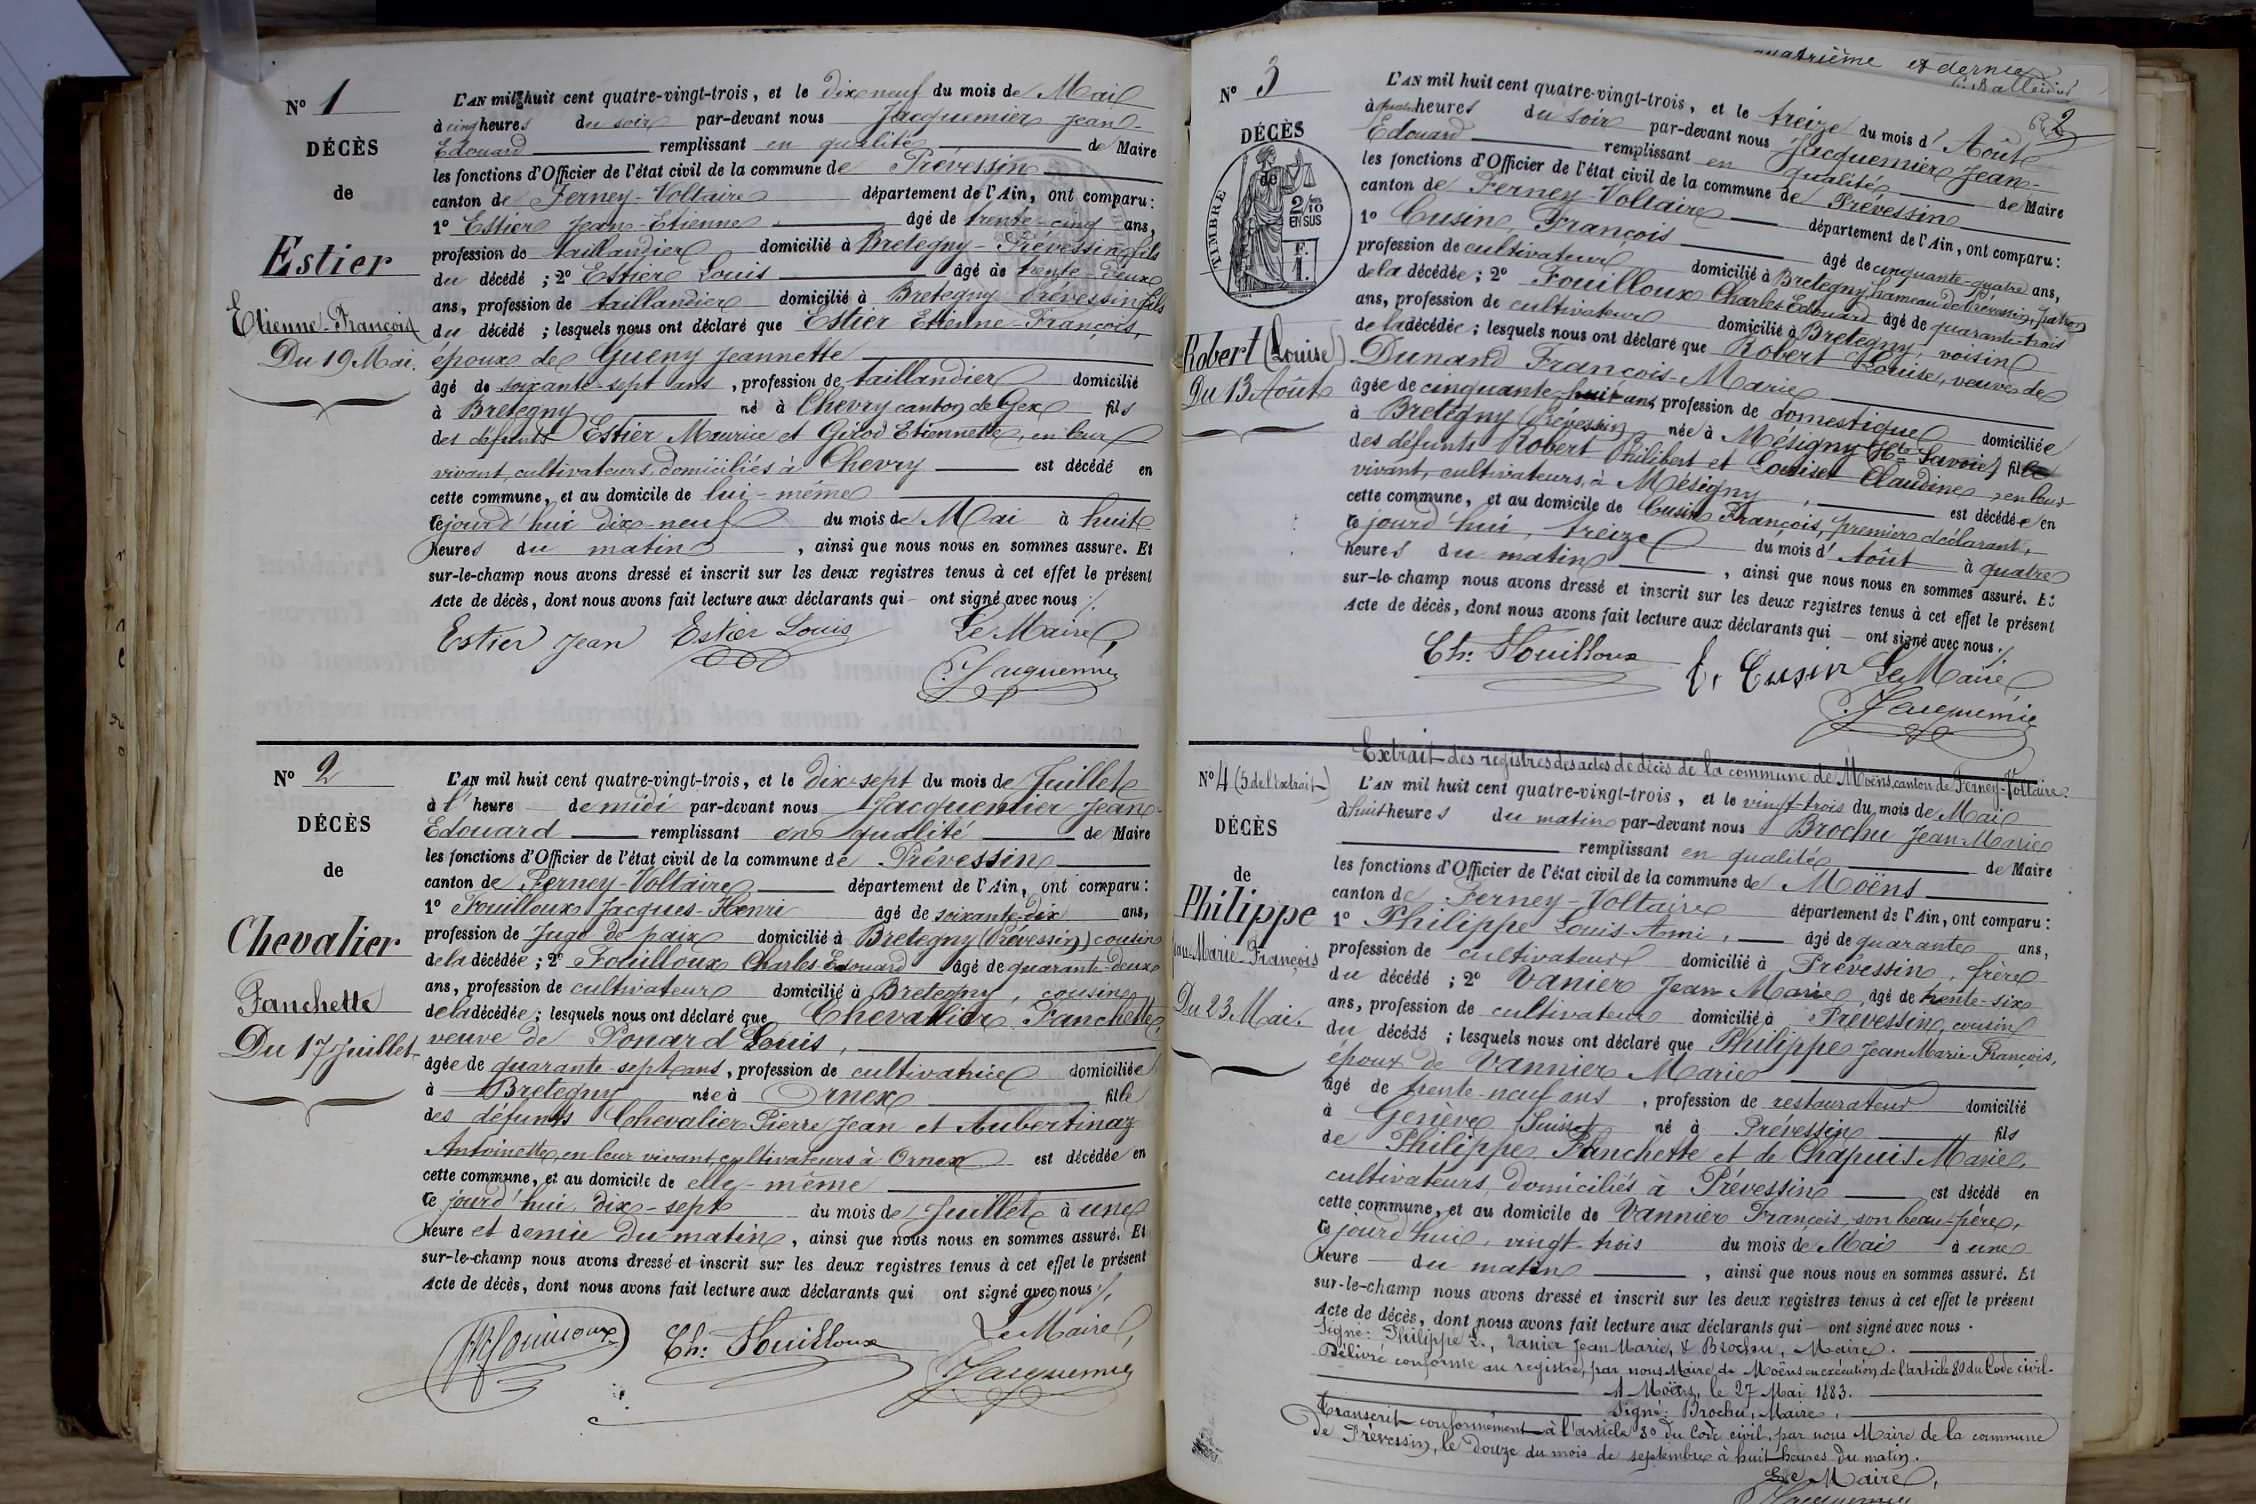 N° 1
DÉCÈS
de
Estier
Etienne-François
Du 19 Mai.
L'AN mil huit cent quatre-vingt-trois, et le dix neuf du mois de Mai
à cinq heures du soir par-devant nous Jacquemier Jean-
Edouard remplissant en qualité de Maire
les fonctions d'Officier de l'état civil de la commune de Prévessin
canton de Ferney-Voltaire département de l'Ain, ont comparu :
1° Estier Jean-Etienne âgé de trente-cinq ans,
profession de taillandier domicilié à Bretegny-Prévessin fils
du décédé ; 2° Estier Louis âgé de trente-deux
ans, profession de taillandier domicilié à Bretegny Prévessin fils
du décédé ; lesquels nous ont déclaré que Estier Etienne-François,
époux de Gueny Jeannette
âgé de soixante-sept ans, profession de taillandier domicilié
à Bretegny né à Chevry canton de Gex fils
des défunts Estier Maurice et Girod Etiennette, en leur
vivant, cultivateurs domiciliés à Chevry est décédé en
cette commune, et au domicile de lui-même
ce jourd'hui dix-neuf du mois de Mai à huit
heures du matin, ainsi que nous nous en sommes assuré. Et
sur-le-champ nous avons dressé et inscrit sur les deux registres tenus à cet effet le présent
Acte de décès, dont nous avons fait lecture aux déclarants qui ont signé avec nous
Estier Jean Estier Louis Le Maire,
Jacquemier
N° 2
DÉCÈS
de
Chevalier
Fanchette
Du 17 Juillet
L'AN mil huit cent quatre-vingt-trois, et le dix-sept du mois de Juillet
à l'heure de midi par-devant nous Jacquemier Jean-
Edouard remplissant en qualité de Maire
les fonctions d'Officier de l'état civil de la commune de Prévessin
canton de Ferney-Voltaire département de l'Ain, ont comparu :
1° Fouilloux Jacques-Henri âgé de soixante-dix ans,
profession de Juge de paix domicilié à Bretegny (Prévessin) cousin
de la décédée ; 2° Fouilloux Charles Edouard âgé de quarante-deux
ans, profession de cultivateur domicilié à Bretegny, cousin
de la décédée ; lesquels nous ont déclaré que Chevalier Fanchette,
veuve de Ponard Louis,
âgée de quarante-sept ans, profession de cultivatrice domiciliée
à Bretegny née à Ornex fille
des défunts Chevalier Pierre Jean et Aubertinaz
Antoinette, en leur vivant, cultivateurs à Ornex est décédée en
cette commune, et au domicile de elle-même
ce jourd'hui dix-sept du mois de Juillet à une
heure et demie du matin, ainsi que nous nous en sommes assuré. Et
sur-le-champ nous avons dressé et inscrit sur les deux registres tenus à cet effet le présent
Acte de décès, dont nous avons fait lecture aux déclarants qui ont signé avec nous
Fouilloux Ch: Fouilloux Le Maire,
Jacquemier
quatrième et dernier
2
N° 3
DÉCÈS
de
TIMBRE
2/10 EN SUS
F. 1.
Robert (Louise)
Du 13 Août
L'AN mil huit cent quatre-vingt-trois, et le treize du mois d'Août
à quatre heures du soir par-devant nous Jacquemier Jean-
Edouard remplissant en qualité de Maire
les fonctions d'Officier de l'état civil de la commune de Prévessin
canton de Ferney-Voltaire département de l'Ain, ont comparu :
1° Cusin, François âgé de cinquante-quatre ans,
profession de cultivateur domicilié à Bretegny, hameau de Prévessin, patron
de la décédée ; 2° Fouilloux Charles Edouard âgé de quarante-trois
ans, profession de cultivateur domicilié à Bretegny, voisin
de la décédée ; lesquels nous ont déclaré que Robert Louise, veuve de
Dunand François-Marie
âgée de cinquante-huit ans, profession de domestique domiciliée
à Bretegny (Prévessin) née à Mésigny (Hte Savoie) fille
des défunts Robert Philibert et Louiset Claudine, en leur
vivant, cultivateurs, à Mésigny, est décédée en
cette commune, et au domicile de Cusin François, premier déclarant,
ce jourd'hui, treize du mois d'Août à quatre
heures du matin, ainsi que nous nous en sommes assuré. Et
sur-le-champ nous avons dressé et inscrit sur les deux registres tenus à cet effet le présent
Acte de décès, dont nous avons fait lecture aux déclarants qui ont signé avec nous.
Ch: Fouilloux F. Cusin Le Maire,
Jacquemier
Extrait des registres des actes de décès de la commune de Moëns, canton de Ferney-Voltaire.
N° 4 (5 de l'extrait)
DÉCÈS
de
Philippe
Jean-Marie-François
Du 23 Mai.
L'AN mil huit cent quatre-vingt-trois, et le vingt-trois du mois de Mai
à huit heures du matin par-devant nous Brochu Jean-Marie
remplissant en qualité de Maire
les fonctions d'Officier de l'état civil de la commune de Moëns
canton de Ferney-Voltaire département de l'Ain, ont comparu :
1° Philippe Louis-Ami, âgé de quarante ans,
profession de cultivateur domicilié à Prévessin, frère
du décédé ; 2° Vanier Jean Marie, âgé de trente-six
ans, profession de cultivateur domicilié à Prévessin, cousin
du décédé ; lesquels nous ont déclaré que Philippe Jean Marie François,
époux de Vannier Marie
âgé de trente-neuf ans, profession de restaurateur domicilié
à Genève Suisse né à Prévessin fils
de Philippe Fanchette et de Chapuis Marie,
cultivateurs, domiciliés à Prévessin est décédé en
cette commune, et au domicile de Vannier François, son beau-père,
ce jourd'hui, vingt-trois du mois de Mai à une
heure du matin, ainsi que nous nous en sommes assuré. Et
sur-le-champ nous avons dressé et inscrit sur les deux registres tenus à cet effet le présent
Acte de décès, dont nous avons fait lecture aux déclarants qui ont signé avec nous.
Signé: Philippe L., Vanier Jean Marie, & Brochu, Maire.
Délivré conforme au registre, par nous Maire de Moëns en exécution de l'article 80 du Code civil.
A Moëns, le 27 Mai 1883.
Signé: Brochu, Maire,
Transcrit conformément à l'article 80 du Code civil, par nous Maire de la commune
de Prévessin, le douze du mois de septembre à huit heures du matin.
Le Maire,
Jacquemier